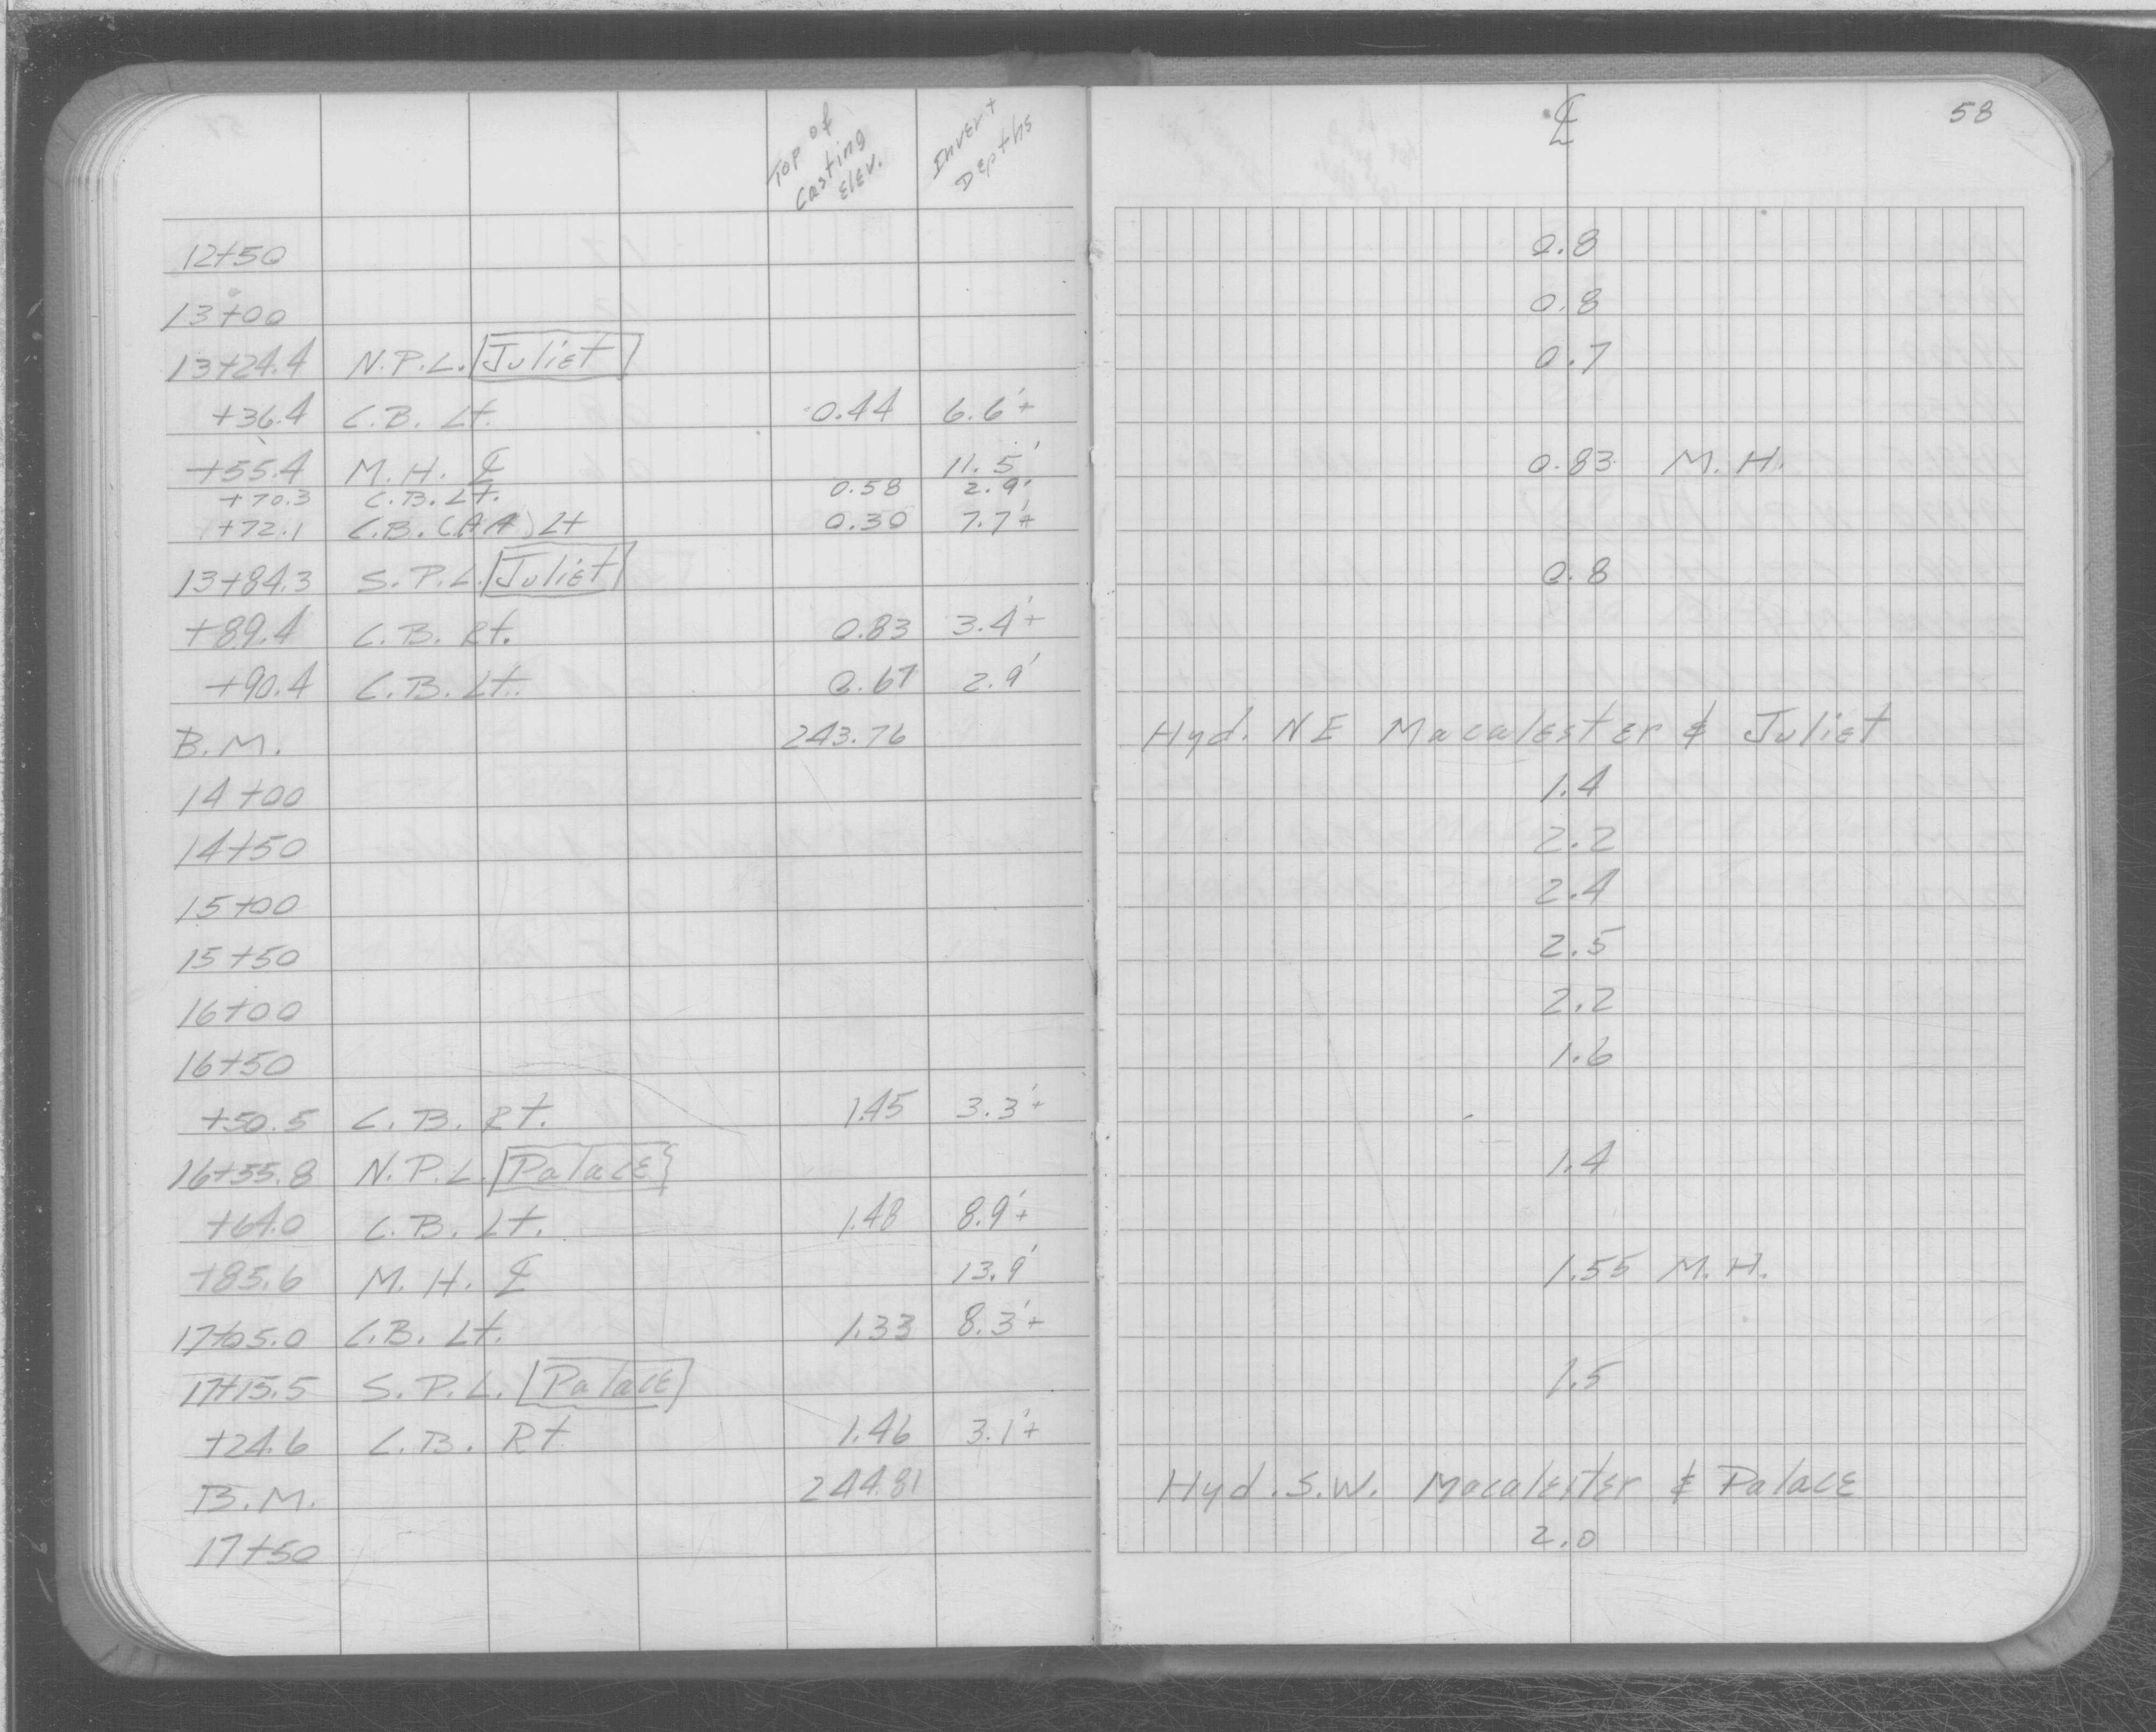 Top of Casting Elev. Invert Depths ℄ 58
12+50 0.8
13+00 0.8
13+24.4 N.P.L. Juliet 0.7
+36.4 C.B. Lt. 0.44 6.6'+
+55.4 M.H. ℄ 11.5' 0.83 M.H.
+70.3 C.B. Lt. 0.58 2.9'
+72.1 C.B. (AA) Lt 0.30 7.7'+
13+84.3 S.P.L. Juliet 0.8
+89.4 C.B. Rt. 0.83 3.4'+
+90.4 C.B. Lt. 0.67 2.9'
B.M. 243.76 Hyd. NE Macalester & Juliet
14+00 1.4
14+50 2.2
15+00 2.4
15+50 2.5
16+00 2.2
16+50 1.6
+50.5 C.B. Rt. 1.45 3.3'+
16+55.8 N.P.L. Palace 1.4
+64.0 C.B. Lt. 1.48 8.9'+
+85.6 M.H. ℄ 13.9' 1.55 M.H.
17+05.0 C.B. Lt. 1.33 8.3'+
17+15.5 S.P.L. Palace 1.5
+24.6 C.B. Rt 1.46 3.1'+
B.M. 244.81 Hyd. S.W. Macalester & Palace
17+50 2.0